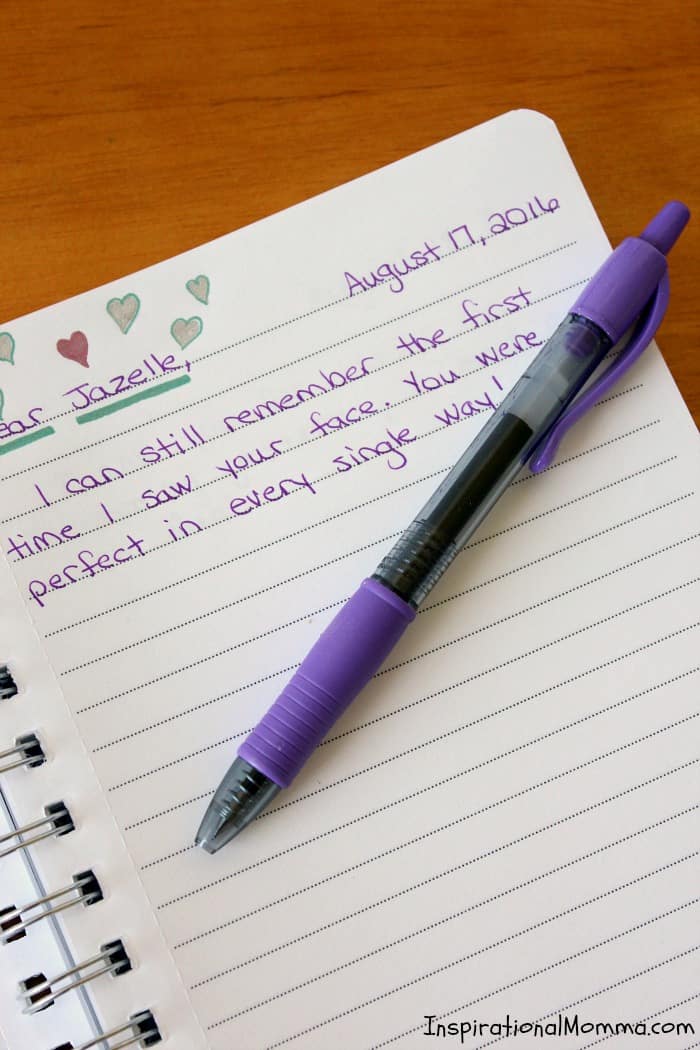 August 17, 2016
ear Jazelle,
I can still remember the first
time I saw your face. You were
perfect in every single way!
InspirationalMomma.com